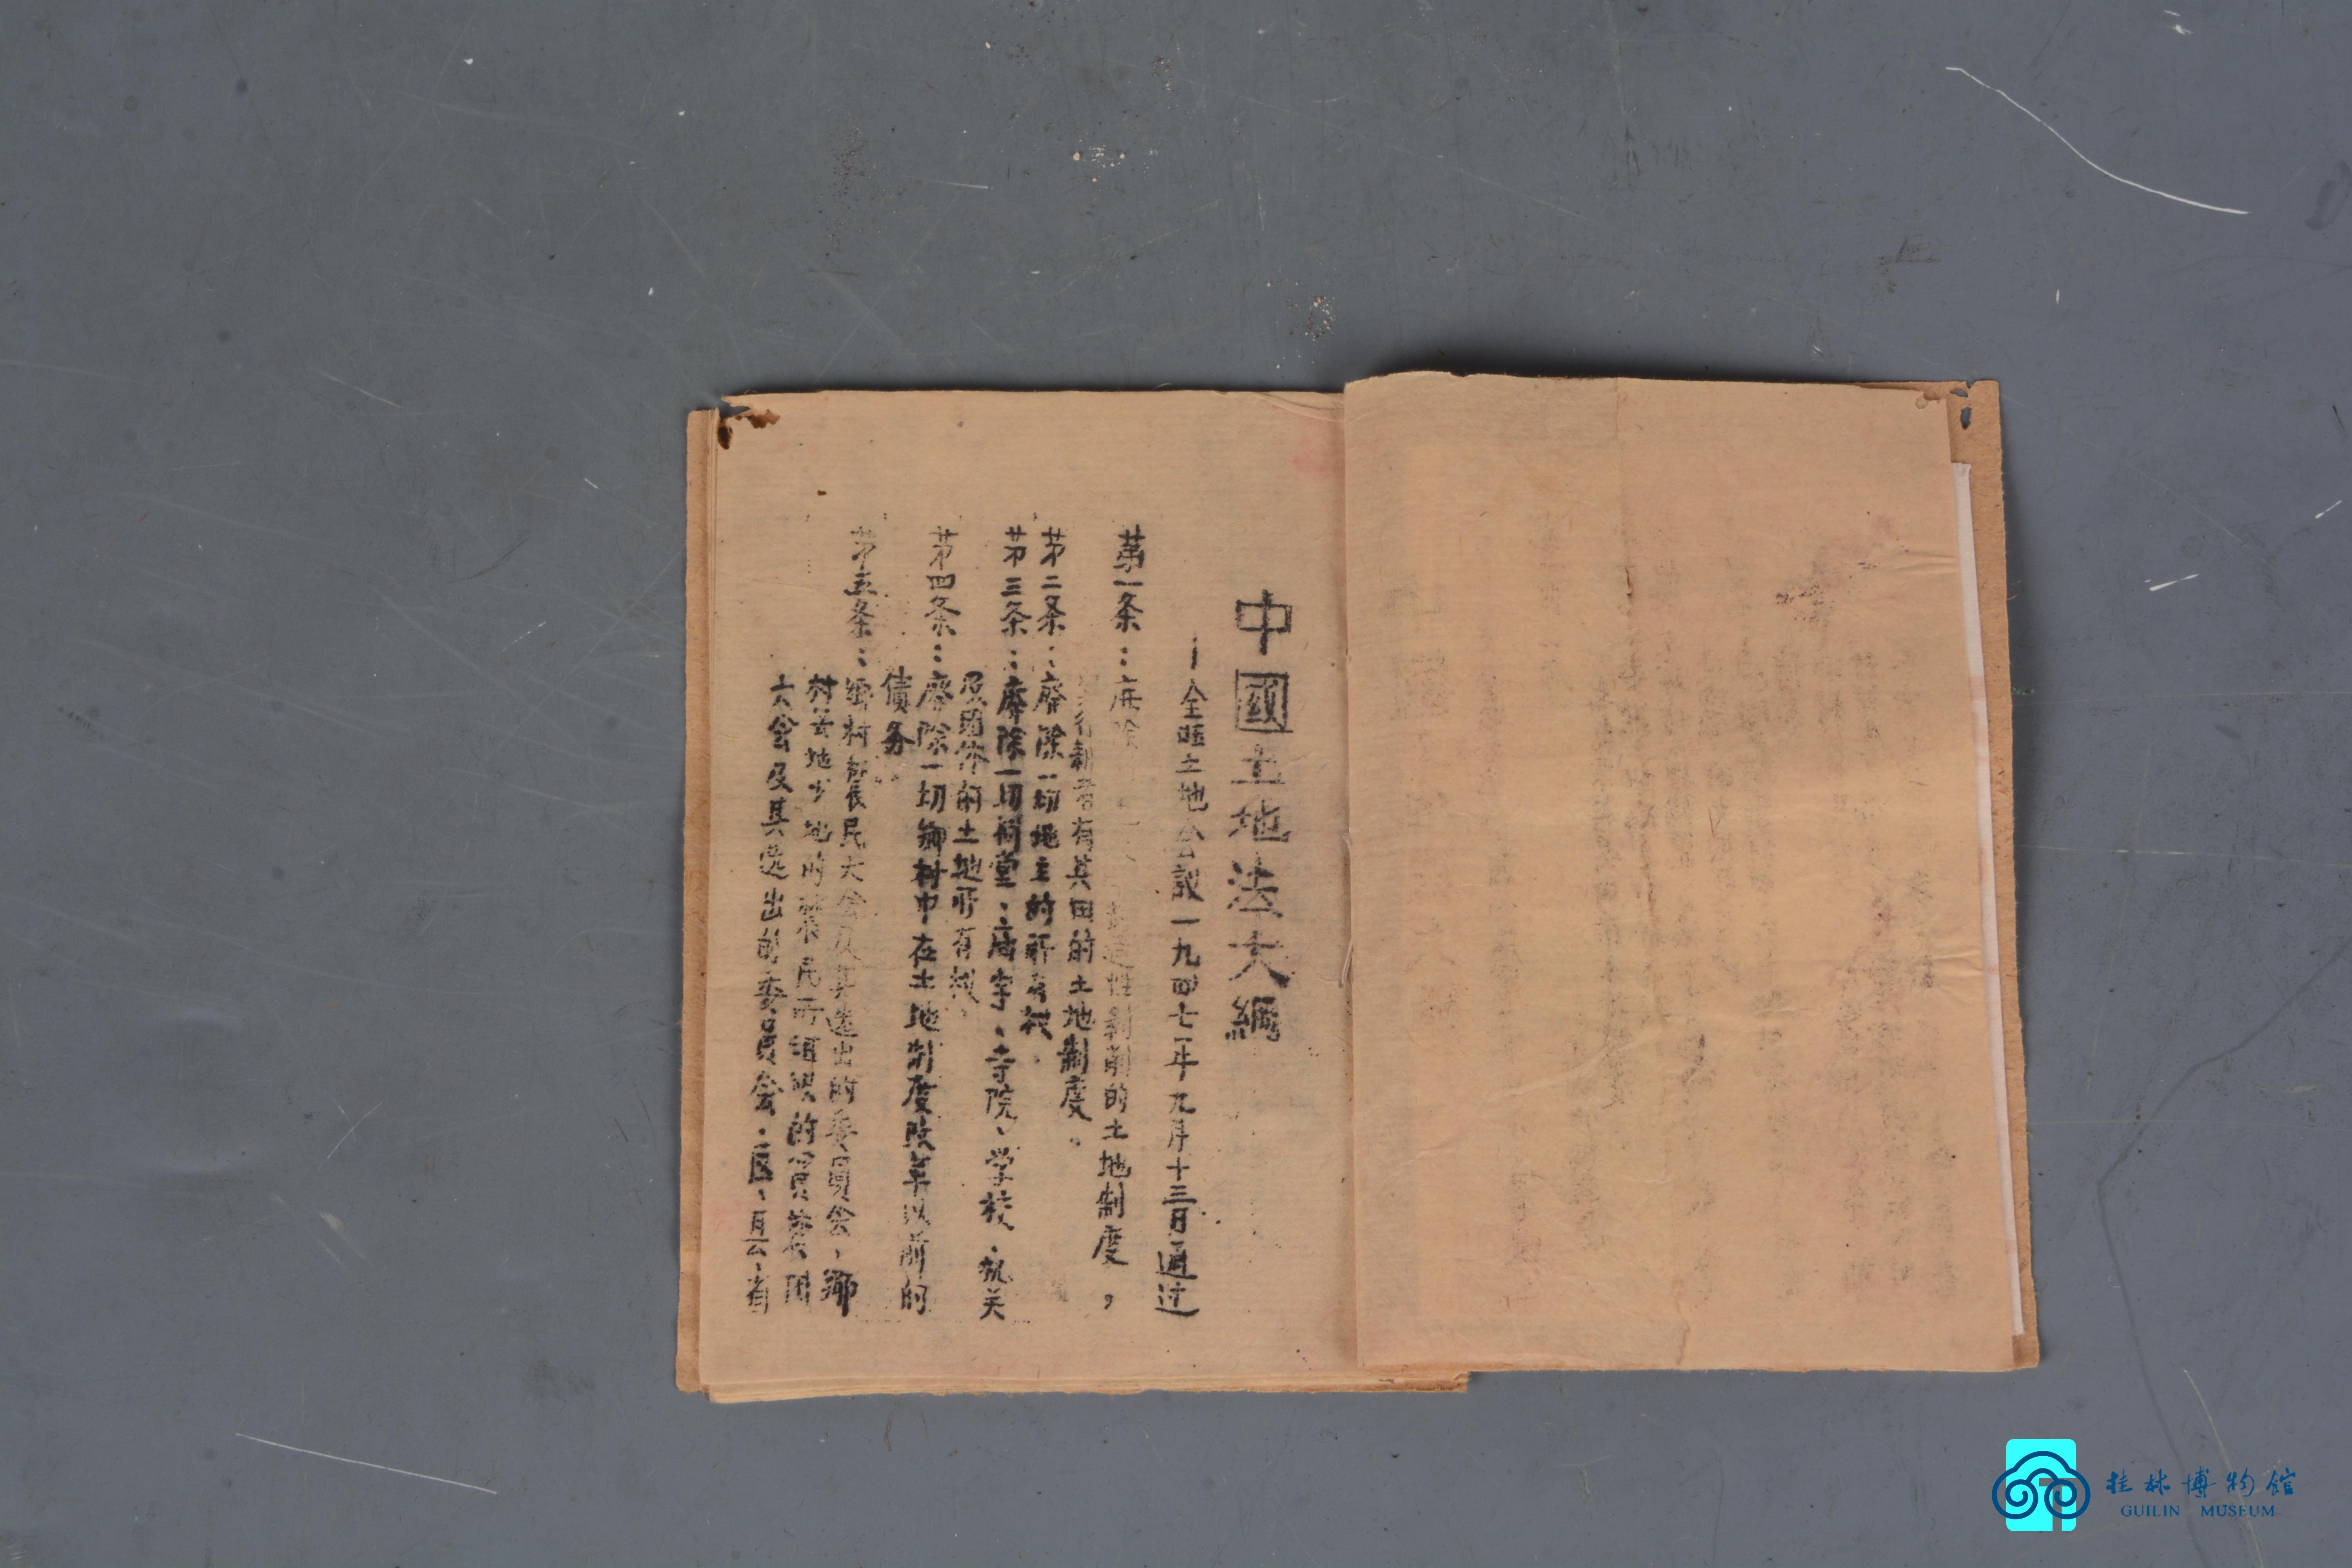 中國土地法大綱
—全囯土地会議一九四七年九月十三日通过
第一条：廃除 性剝削的土地制度，
实行耕者有其田的土地制度。
苐二条：廃除一切地主的所有权.
苐三条：廃除一切祠堂、庙宇、寺院、学校、机关
及团体的土地所有权.
苐四条：廃除一切鄉村中在土地制度改革以前的
债务
苐五条：鄉村农民大会及其选出的委員会，鄉
村无地少地的农民所组织的貧农团
大会及其选出的委員会.区、县、省
桂林博物馆
GUILIN MUSEUM